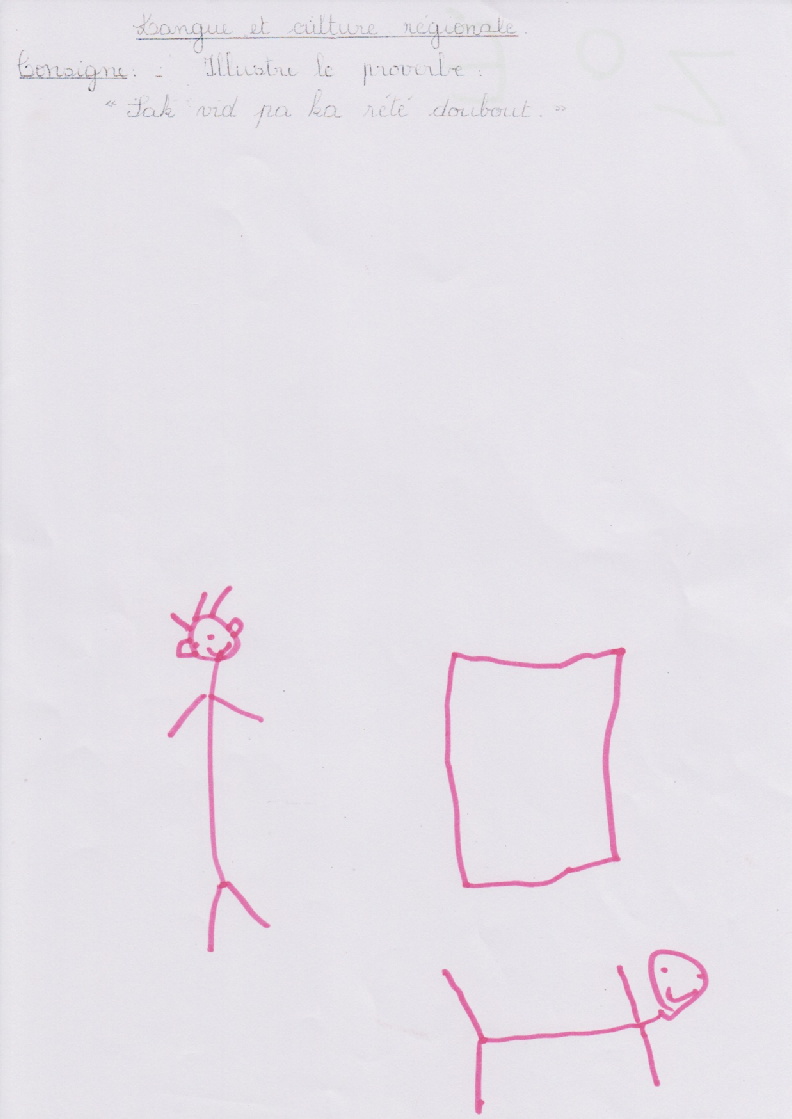 Langue et culture régionale.
Consigne : Illustre le proverbe :
" Sak vid pa ka rété doubout. "